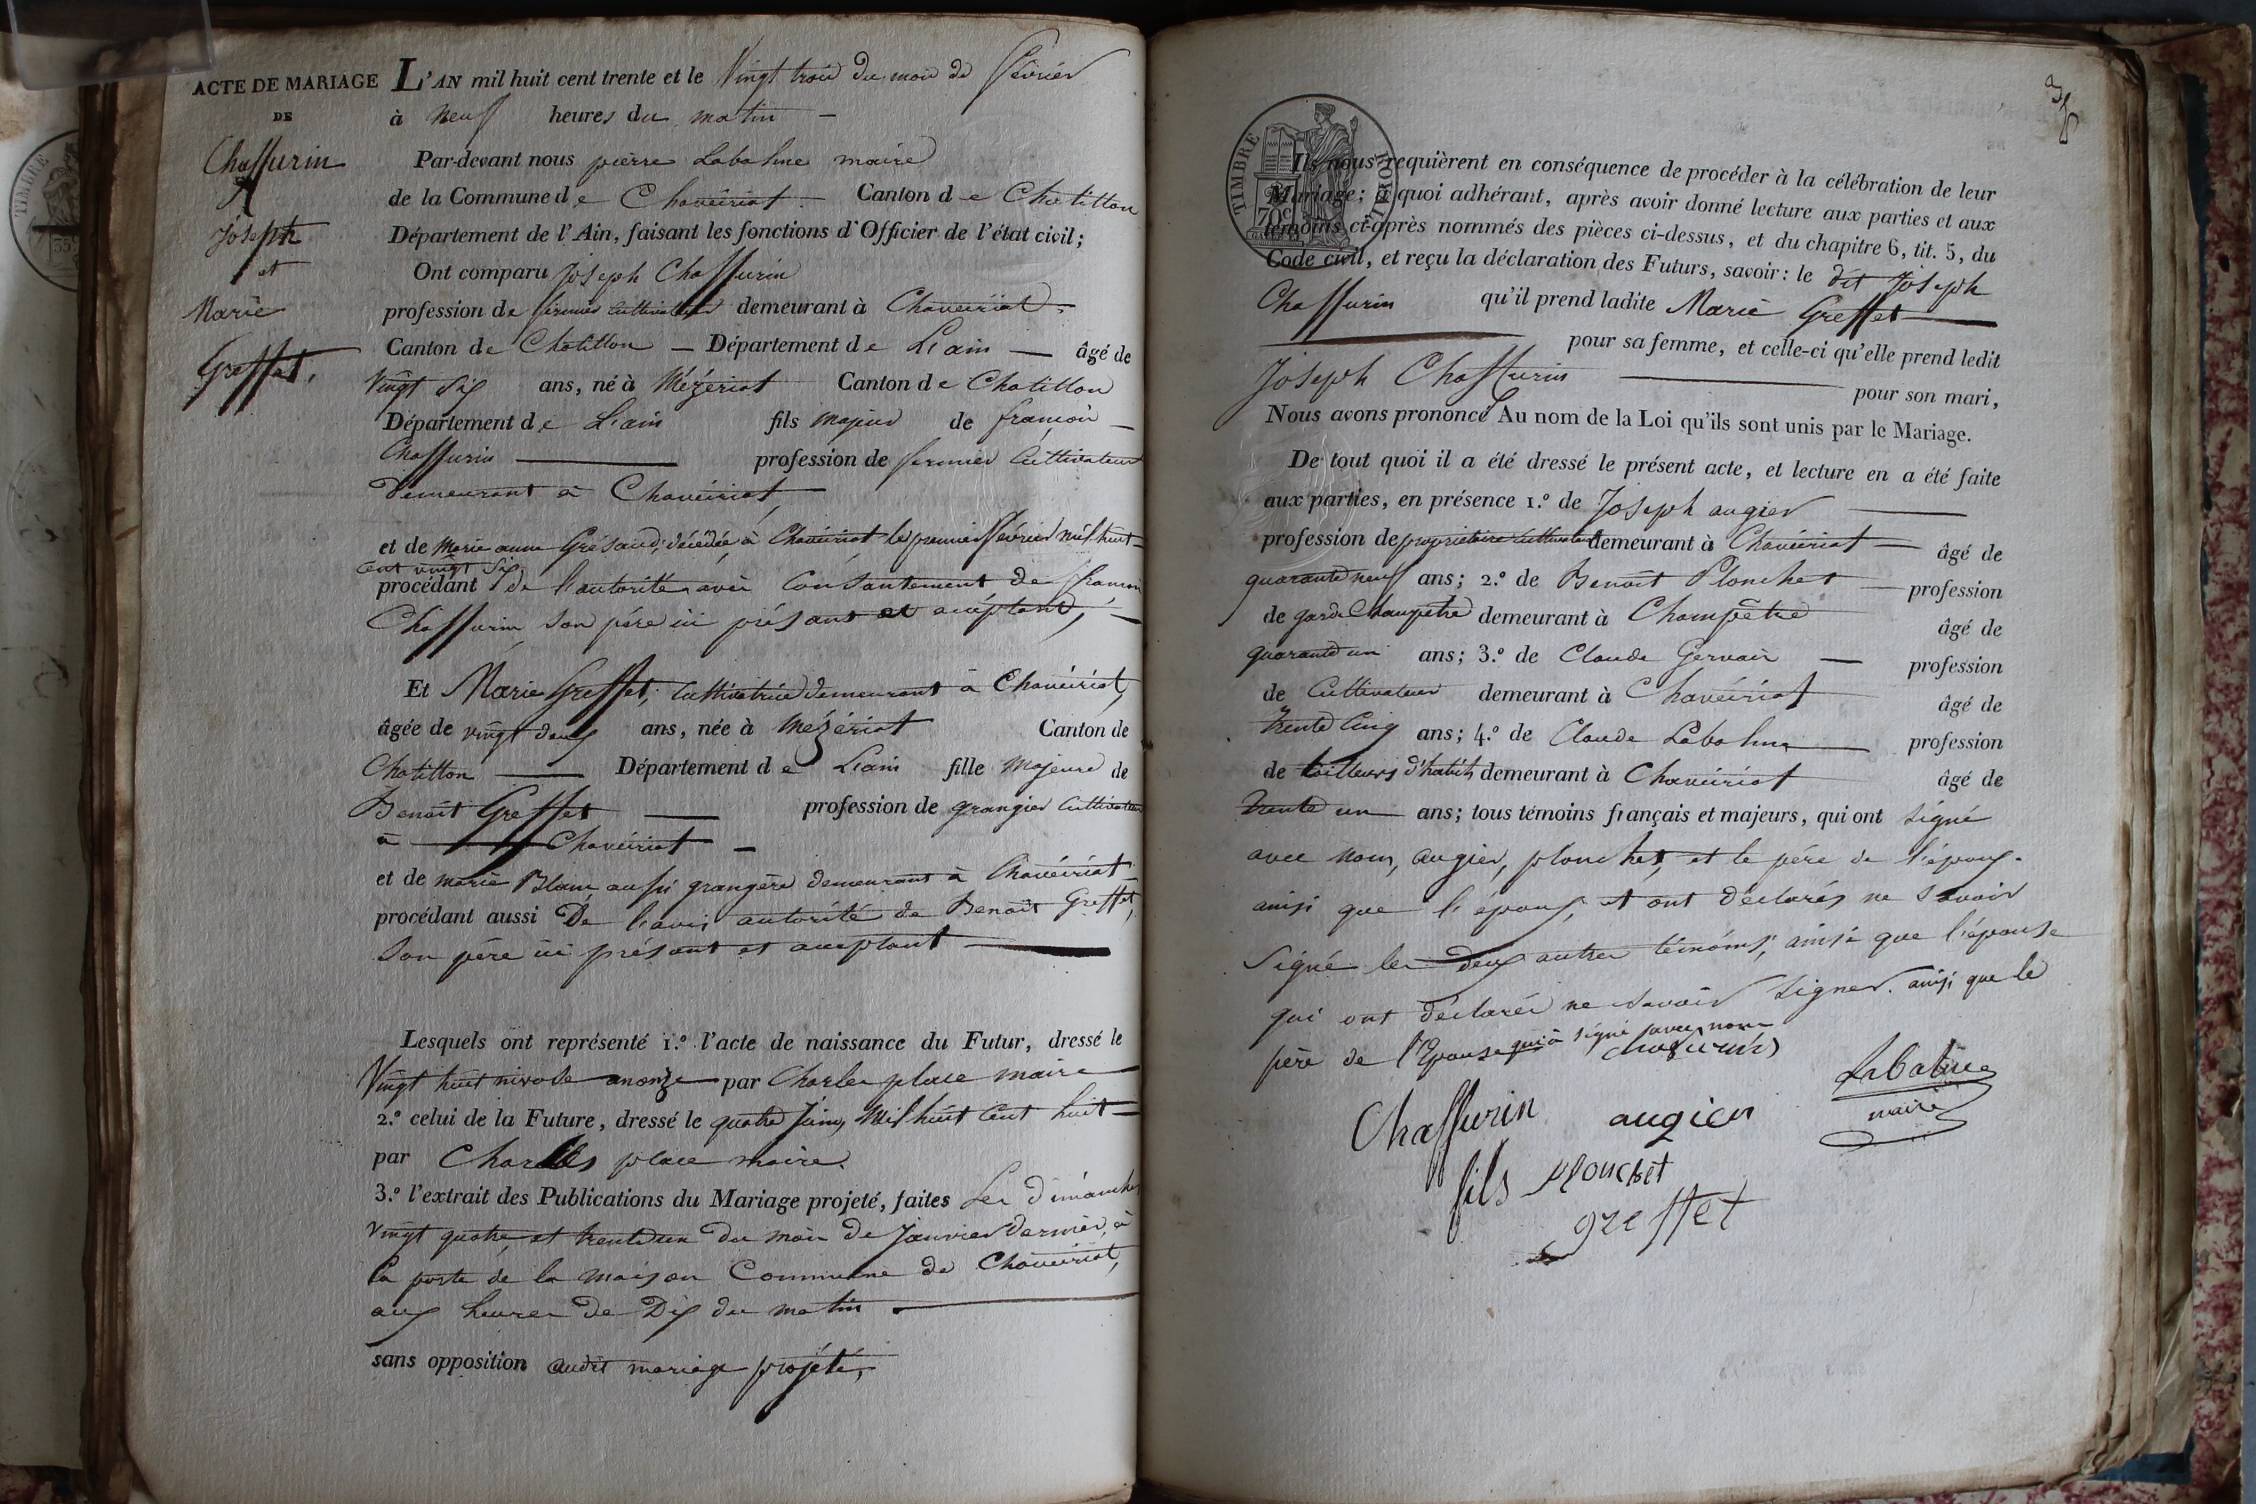 ACTE DE MARIAGE
DE
Chaffurin
Joseph
et
Marie
Greffet,
L'AN mil huit cent trente et le Vingt trois du mois de février
à neuf heures du matin —
Par-devant nous pierre Labalme maire
de la Commune de Chaveiriat. Canton de Chatillon
Département de l'Ain, faisant les fonctions d'Officier de l'état civil;
Ont comparu Joseph Chaffurin
profession de fermier Cultivateur demeurant à Chaveiriat
Canton de Chatillon — Département de L'ain — âgé de
Vingt six ans, né à Mézériat Canton de Chatillon
Département de L'ain fils majeur de françois —
Chaffurin — profession de fermier Cultivateur
demeurant à Chaveiriat,
et de marie anne Grésaud, décédée à Chaveiriat le premier février mil huit
Cent vingt six
procédant de l'autorité avis Consantement de françois
Chaffurin son père ici présant et acceptant, —
Et Marie Greffet, Cultivatrice demeurant à Chaveiriat,
âgée de vingt deux ans, née à Mézériat Canton de
Chatillon — Département de L'ain fille majeure de
Benoit Greffet — profession de grangier Cultivateur
à Chaveiriat —
et de marie Blanc aussi grangère demeurant à Chaveiriat
procédant aussi De l'avis autorité de Benoit Greffet,
son père ici présant et acceptant —
Lesquels ont représenté 1.º l'acte de naissance du Futur, dressé le
Vingt huit nivose an onze par Charles place maire
2.º celui de la Future, dressé le quatre Juin, Mil huit Cent huit —
par Charles place maire.
3.º l'extrait des Publications du Mariage projeté, faites Les dimanches
vingt quatre, et trente un du mois de Janvier dernier, à
la porte de la maison Commune de Chaveiriat,
aux heures de Dix du matin —
sans opposition audit mariage projeté,
TIMBRE
ROYAL
70c
Ils nous requièrent en conséquence de procéder à la célébration de leur
Mariage; à quoi adhérant, après avoir donné lecture aux parties et aux
témoins ci-après nommés des pièces ci-dessus, et du chapitre 6, tit. 5, du
Code civil, et reçu la déclaration des Futurs, savoir: le dit Joseph
Chaffurin qu'il prend ladite Marie Greffet —
pour sa femme, et celle-ci qu'elle prend ledit
Joseph Chaffurin — pour son mari,
Nous avons prononcé Au nom de la Loi qu'ils sont unis par le Mariage.
De tout quoi il a été dressé le présent acte, et lecture en a été faite
aux parties, en présence 1.º de Joseph augier —
profession de propriétaire Cultivateur demeurant à Chaveiriat — âgé de
quarante neuf ans; 2.º de Benoit Plonchet — profession
de garde Champetre demeurant à Champêtre âgé de
quarante un ans; 3.º de Claude Gervais — profession
de Cultivateur demeurant à Chaveiriat âgé de
trente Cinq ans; 4.º de Claude Labalme — profession
de tailleurs d'habits demeurant à Chaveiriat âgé de
trente un ans; tous témoins français et majeurs, qui ont signé
avec nous, augier, plonchet, et le père de l'époux.
ainsi que l'époux, et ont déclarés ne Savoir
Signé les deux autres témoins, ainsi que l'épouse
qui ont déclarés ne Savoir Signer. ainsi que le
père de l'Epouse qui à signé avec nous
Chaffurin
Labalme
maire
Chaffurin
fils
augier
plonchet
greffet